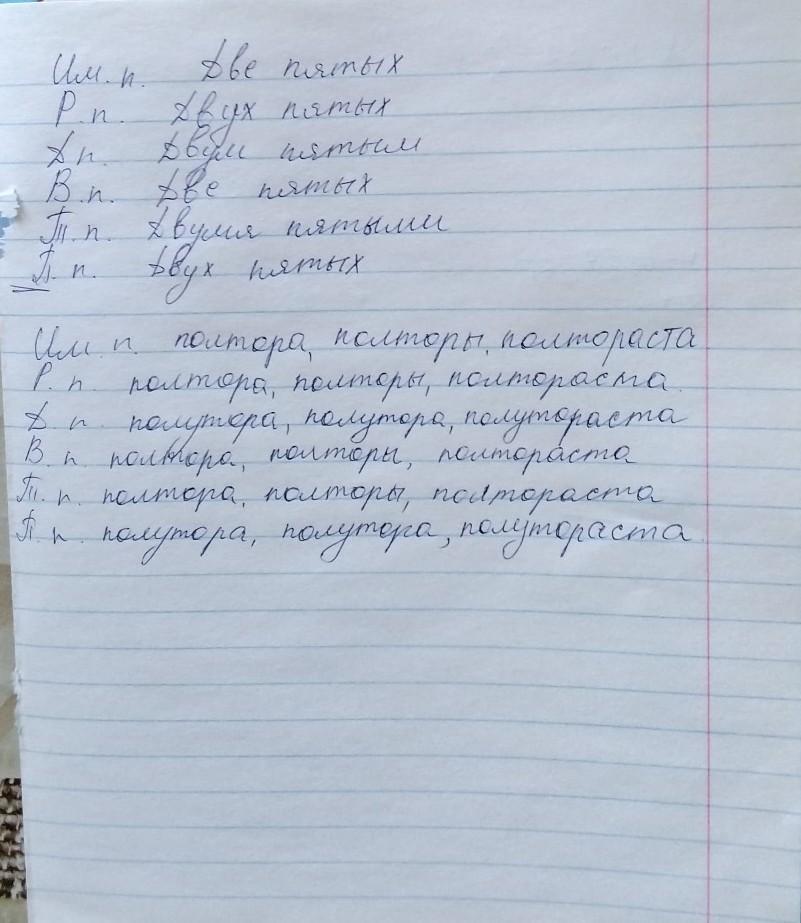 Им. п. Две пятых
Р. п. Двух пятых
Д п. Двум пятым
В. п. Две пятых
Т. п. Двумя пятыми
П. п. Двух пятых
Им. п. полтора, полторы, полтораста
Р. п. полтора, полторы, полтораста
Д. п. полутора, полутора, полутораста
В. п. полтора, полторы, полтораста
Т. п. полтора, полторы, полтораста
П. п. полутора, полутора, полутораста.